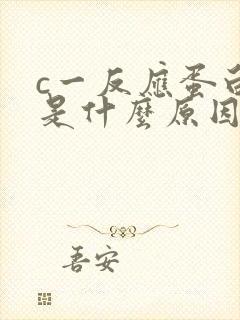 c一反應蛋白
是什麼原因
吾安